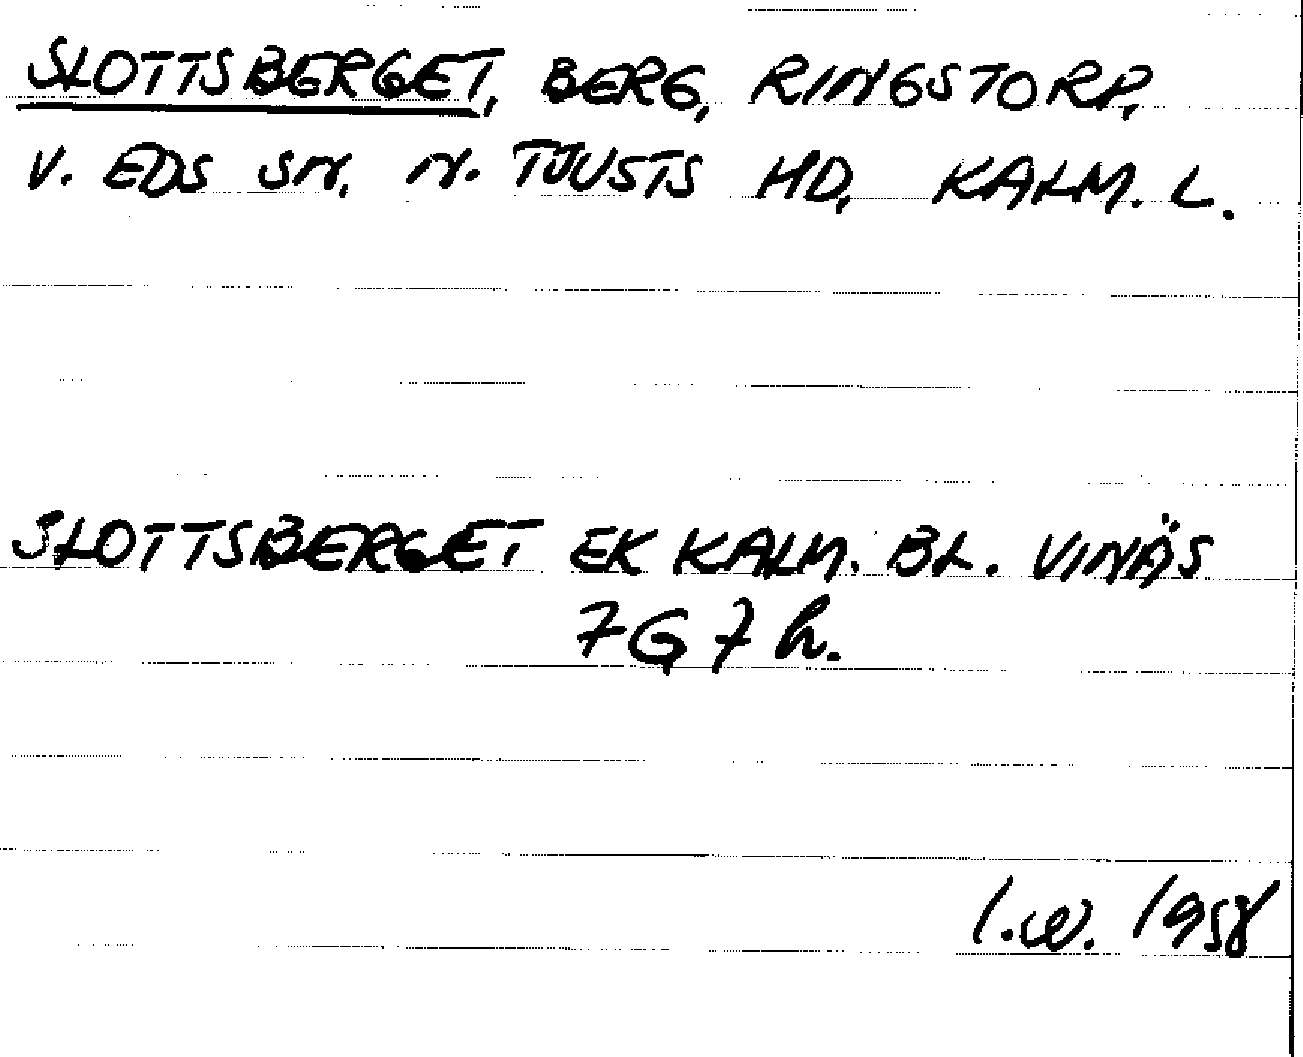 SLOTTSBERGET, BERG, RINGSTORP,
V. EDS SN, N. TJUSTS HD, KALM. L.
SLOTTSBERGET EK KALM. BL. VINÄS
7G 7 h.
I.W. 1958